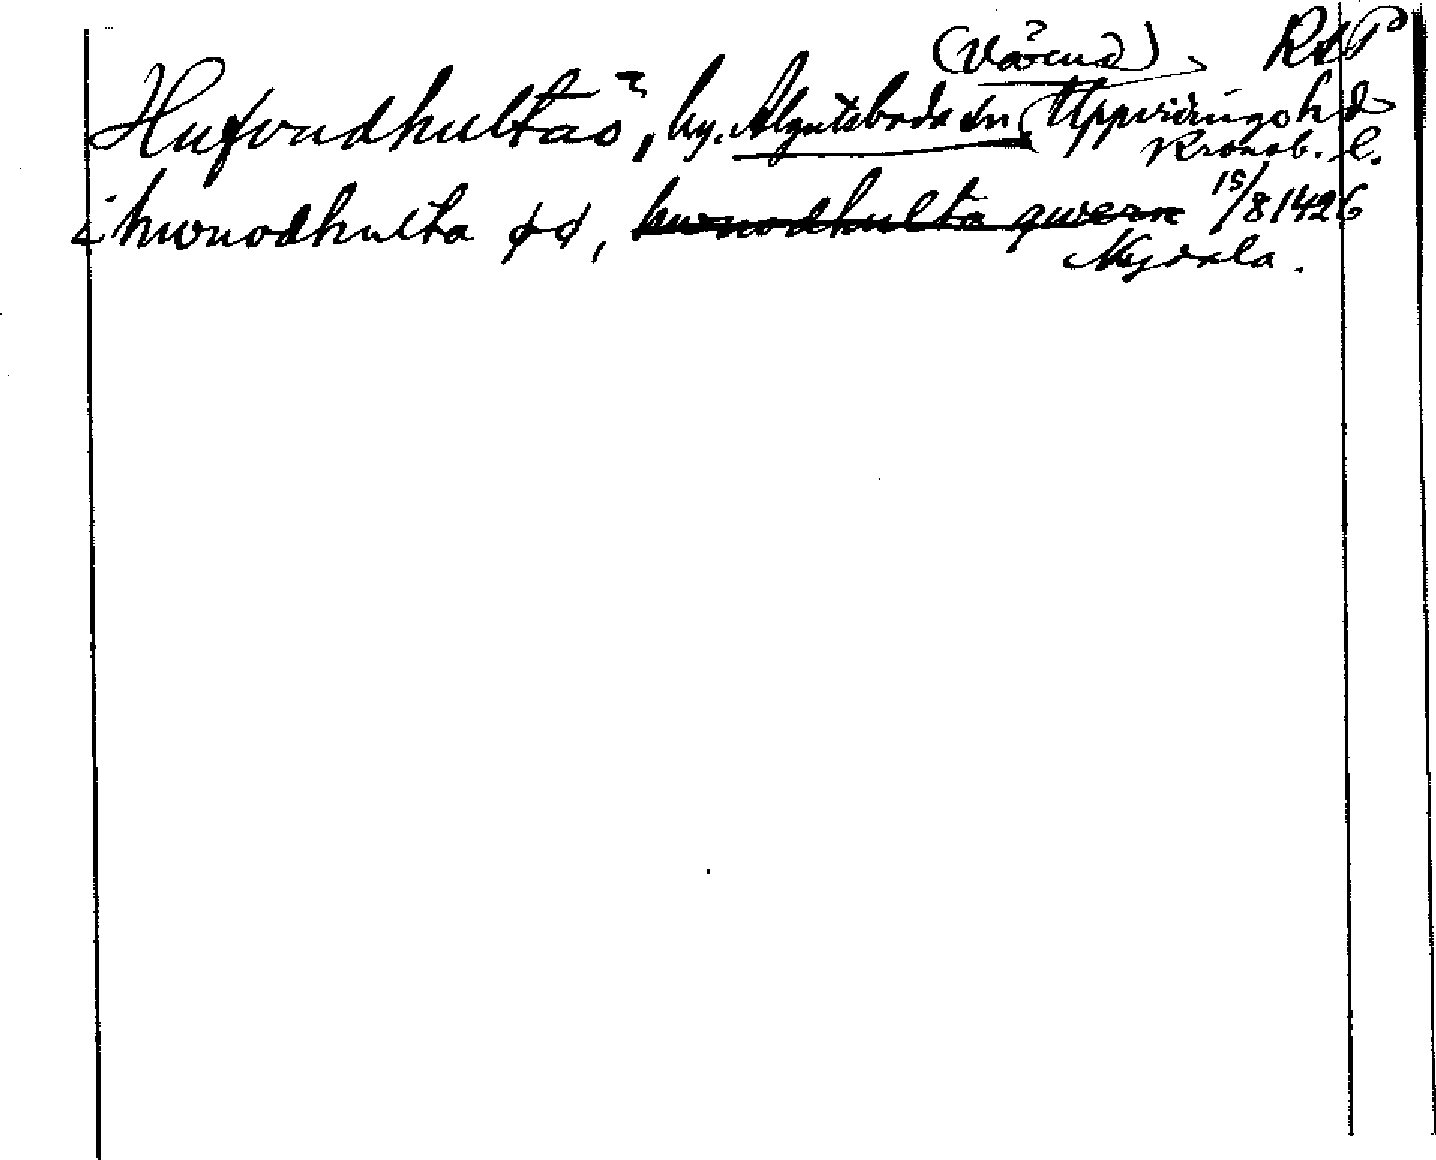 (Värend) RAP
Hufvudhultaö, by. Algutsboda sn Uppvidinge hd
Kronob. l.
i hwnodhulta ϕϕ, hwnodhulta qwern 15/8 1426
Nydala.